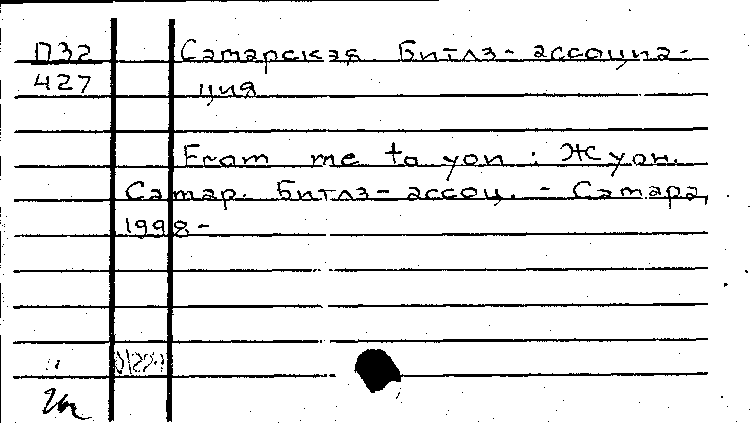 П32
427
Самарская Битлз-ассоциа-
ция
From me to you : Журн.
Самар. Битлз-ассоц. - Самара,
1998-